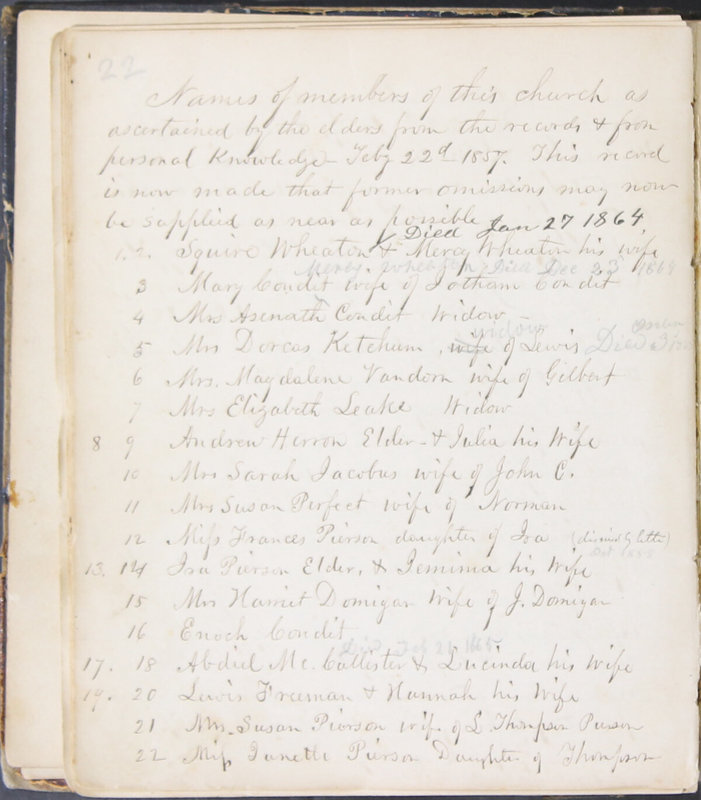 22
Names of members of this church as
ascertained by the elders from the records & from
personal Knowledge – Feby 22d 1857. This record
is now made that former omissions may now
be supplied as near as possible
Died Jan 27 1864
1, 2. Squire Wheaton & Mercy Wheaton his wife
Mercy Wheaton Died Dec 23 1864
3 Mary Condit wife of Jotham Condit
4 Mrs Asenath Condit Widow –
widow
5 Mrs Dorcas Ketchum, wife of Lewis Died
6 Mrs. Magdalene Vandorn wife of Gilbert
7 Mrs Elizabeth Leake Widow
8 9 Andrew Herron Elder – & Julia his Wife
10 Mrs Sarah Jacobus wife of John C.
11 Mrs Susan Perfect wife of Norman
12 Miss Frances Pierson daughter of Ira (dismisd by letter)
Oct
13, 14 Ira Pierson Elder, & Jemima his Wife
15 Mrs Harriet Domigan Wife of J. Domigan
16 Enoch Condit
Died Feb 21 1865
17. 18 Abdiel Mc. Callister & Lucinda his Wife
19. 20 Lewis Freeman & Hannah his Wife
21 Mrs. Susan Pierson wife of L. Thompson Pierson
22 Miss Junette Pierson Daughter of Thompson